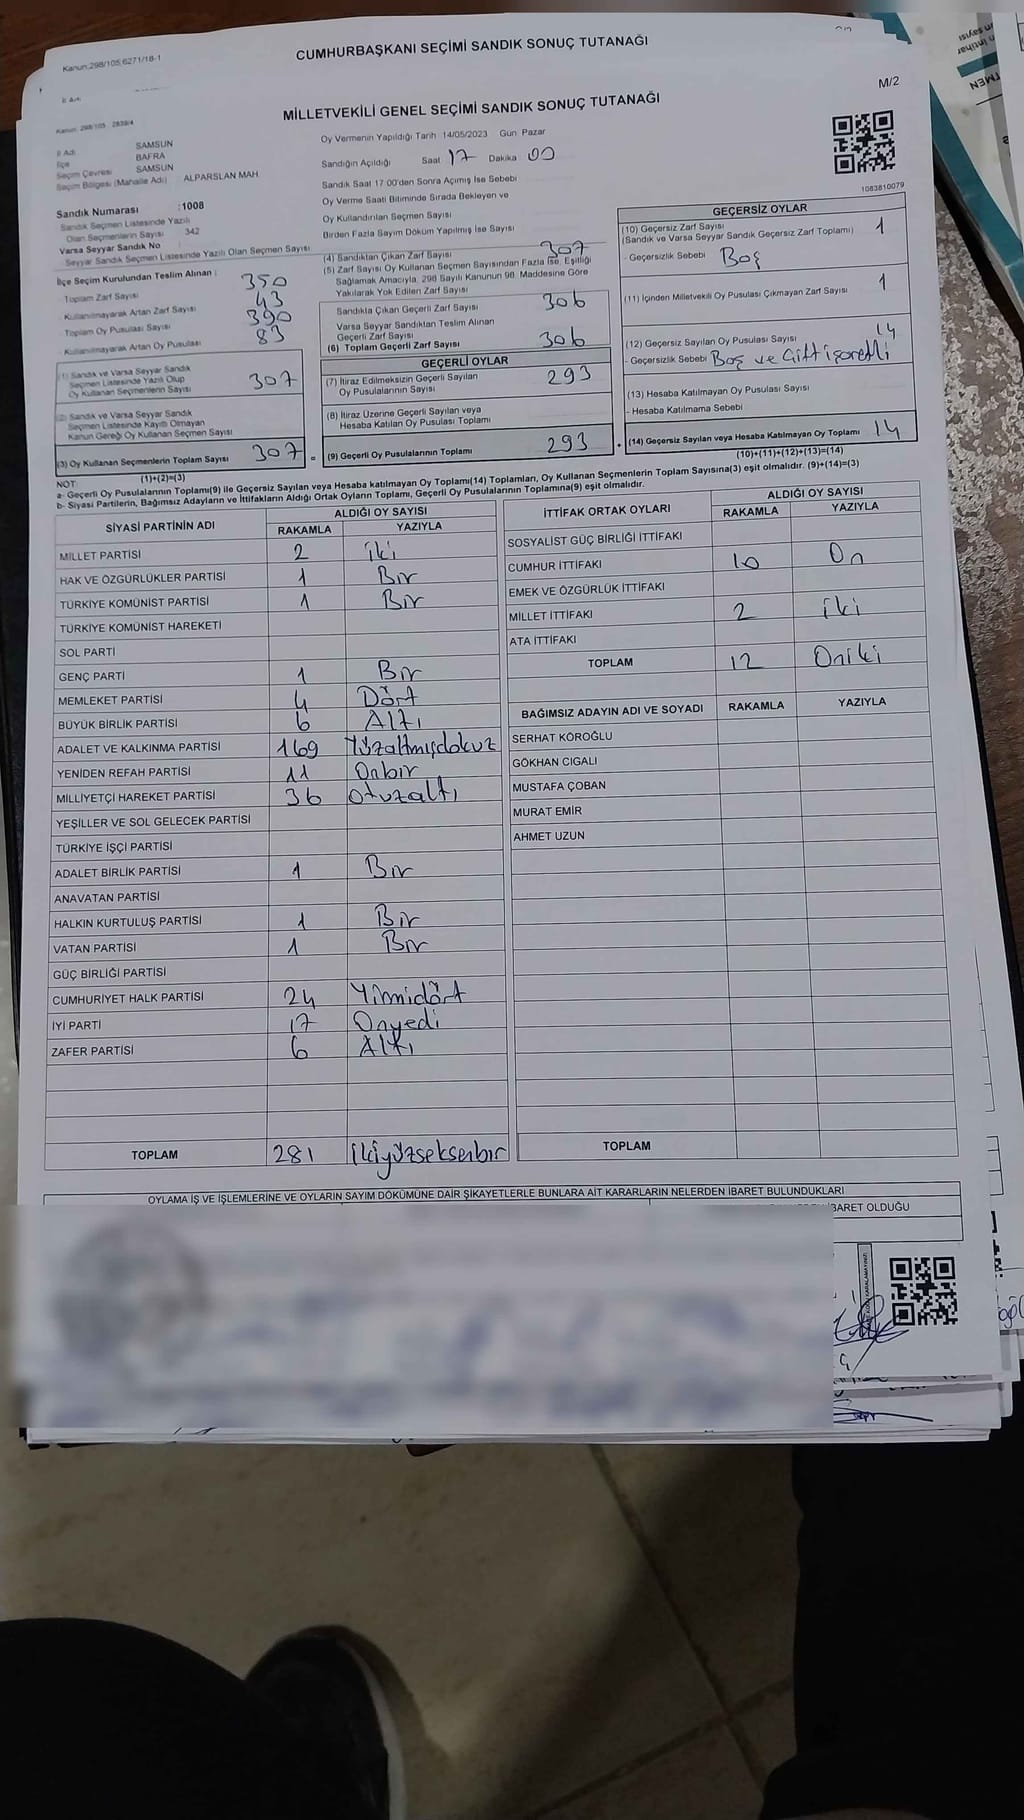 Kanun:298/105;6271/18-1
CUMHURBAŞKANI SEÇİMİ SANDIK SONUÇ TUTANAĞI
İl Adı
MİLLETVEKİLİ GENEL SEÇİMİ SANDIK SONUÇ TUTANAĞI
M/2
Kanun: 298/105 2839/4
İl Adı SAMSUN
İlçe BAFRA
Seçim Çevresi SAMSUN
Seçim Bölgesi (Mahalle Adı) : ALPARSLAN MAH
Sandık Numarası :1008
Sandık Seçmen Listesinde Yazılı
Olan Seçmenlerin Sayısı 342
Varsa Seyyar Sandık No
Seyyar Sandık Seçmen Listesinde Yazılı Olan Seçmen Sayısı
Oy Vermenin Yapıldığı Tarih 14/05/2023 Gün Pazar
Sandığın Açıldığı Saat 17 Dakika 00
Sandık Saat 17:00'den Sonra Açımış İse Sebebi
Oy Verme Saati Bitiminde Sırada Bekleyen ve
Oy Kullandırılan Seçmen Sayısı
Birden Fazla Sayım Döküm Yapılmış İse Sayısı
1083810079
İlçe Seçim Kurulundan Teslim Alınan :
Toplam Zarf Sayısı 350
Kullanılmayarak Artan Zarf Sayısı 43
Toplam Oy Pusulası Sayısı 390
Kullanılmayarak Artan Oy Pusulası 83
(1) Sandık ve Varsa Seyyar Sandık
Seçmen Listesinde Yazılı Olup
Oy Kullanan Seçmenlerin Sayısı 307
(2) Sandık ve Varsa Seyyar Sandık
Seçmen Listesinde Kayıtlı Olmayan
Kanun Gereği Oy Kullanan Seçmen Sayısı
(3) Oy Kullanan Seçmenlerin Toplam Sayısı 307
(1)+(2)=(3)
(4) Sandıktan Çıkan Zarf Sayısı 307
(5) Zarf Sayısı Oy Kullanan Seçmen Sayısından Fazla İse, Eşitliği
Sağlamak Amacıyla, 298 Sayılı Kanunun 98. Maddesine Göre
Yakılarak Yok Edilen Zarf Sayısı
Sandıkta Çıkan Geçerli Zarf Sayısı 306
Varsa Seyyar Sandıktan Teslim Alınan
Geçerli Zarf Sayısı
(6) Toplam Geçerli Zarf Sayısı 306
GEÇERLİ OYLAR
(7) İtiraz Edilmeksizin Geçerli Sayılan
Oy Pusulalarının Sayısı 293
(8) İtiraz Üzerine Geçerli Sayılan veya
Hesaba Katılan Oy Pusulası Toplamı
= (9) Geçerli Oy Pusulalarının Toplamı 293
GEÇERSİZ OYLAR
(10) Geçersiz Zarf Sayısı
(Sandık ve Varsa Seyyar Sandık Geçersiz Zarf Toplamı) 1
- Geçersizlik Sebebi Boş
(11) İçinden Milletvekili Oy Pusulası Çıkmayan Zarf Sayısı 1
(12) Geçersiz Sayılan Oy Pusulası Sayısı 14
- Geçersizlik Sebebi Boş ve Çift işaretli
(13) Hesaba Katılmayan Oy Pusulası Sayısı
- Hesaba Katılmama Sebebi
+ (14) Geçersiz Sayılan veya Hesaba Katılmayan Oy Toplamı 14
(10)+(11)+(12)+(13)=(14)
NOT:
a- Geçerli Oy Pusulalarının Toplamı(9) ile Geçersiz Sayılan veya Hesaba katılmayan Oy Toplamı(14) Toplamları, Oy Kullanan Seçmenlerin Toplam Sayısına(3) eşit olmalıdır. (9)+(14)=(3)
b- Siyasi Partilerin, Bağımsız Adayların ve İttifakların Aldığı Ortak Oyların Toplamı, Geçerli Oy Pusulalarının Toplamına(9) eşit olmalıdır.
SİYASİ PARTİNİN ADI ALDIĞI OY SAYISI
RAKAMLA YAZIYLA
MİLLET PARTİSİ 2 iki
HAK VE ÖZGÜRLÜKLER PARTİSİ 1 Bir
TÜRKİYE KOMÜNİST PARTİSİ 1 Bir
TÜRKİYE KOMÜNİST HAREKETİ
SOL PARTİ
GENÇ PARTİ 1 Bir
MEMLEKET PARTİSİ 4 Dört
BÜYÜK BİRLİK PARTİSİ 6 Altı
ADALET VE KALKINMA PARTİSİ 169 Yüzaltmışdokuz
YENİDEN REFAH PARTİSİ 11 Onbir
MİLLİYETÇİ HAREKET PARTİSİ 36 otuzaltı
YEŞİLLER VE SOL GELECEK PARTİSİ
TÜRKİYE İŞÇİ PARTİSİ
ADALET BİRLİK PARTİSİ 1 Bir
ANAVATAN PARTİSİ
HALKIN KURTULUŞ PARTİSİ 1 Bir
VATAN PARTİSİ 1 Bir
GÜÇ BİRLİĞİ PARTİSİ
CUMHURİYET HALK PARTİSİ 24 Yirmidört
İYİ PARTİ 17 Onyedi
ZAFER PARTİSİ 6 Altı
TOPLAM 281 ikiyüzseksenbir
İTTİFAK ORTAK OYLARI ALDIĞI OY SAYISI
RAKAMLA YAZIYLA
SOSYALİST GÜÇ BİRLİĞİ İTTİFAKI
CUMHUR İTTİFAKI 10 On
EMEK VE ÖZGÜRLÜK İTTİFAKI
MİLLET İTTİFAKI 2 iki
ATA İTTİFAKI
TOPLAM 12 Oniki
BAĞIMSIZ ADAYIN ADI VE SOYADI RAKAMLA YAZIYLA
SERHAT KÖROĞLU
GÖKHAN CIGALI
MUSTAFA ÇOBAN
MURAT EMİR
AHMET UZUN
TOPLAM
OYLAMA İŞ VE İŞLEMLERİNE VE OYLARIN SAYIM DÖKÜMÜNE DAİR ŞİKAYETLERLE BUNLARA AİT KARARLARIN NELERDEN İBARET BULUNDUKLARI
İBARET OLDUĞU